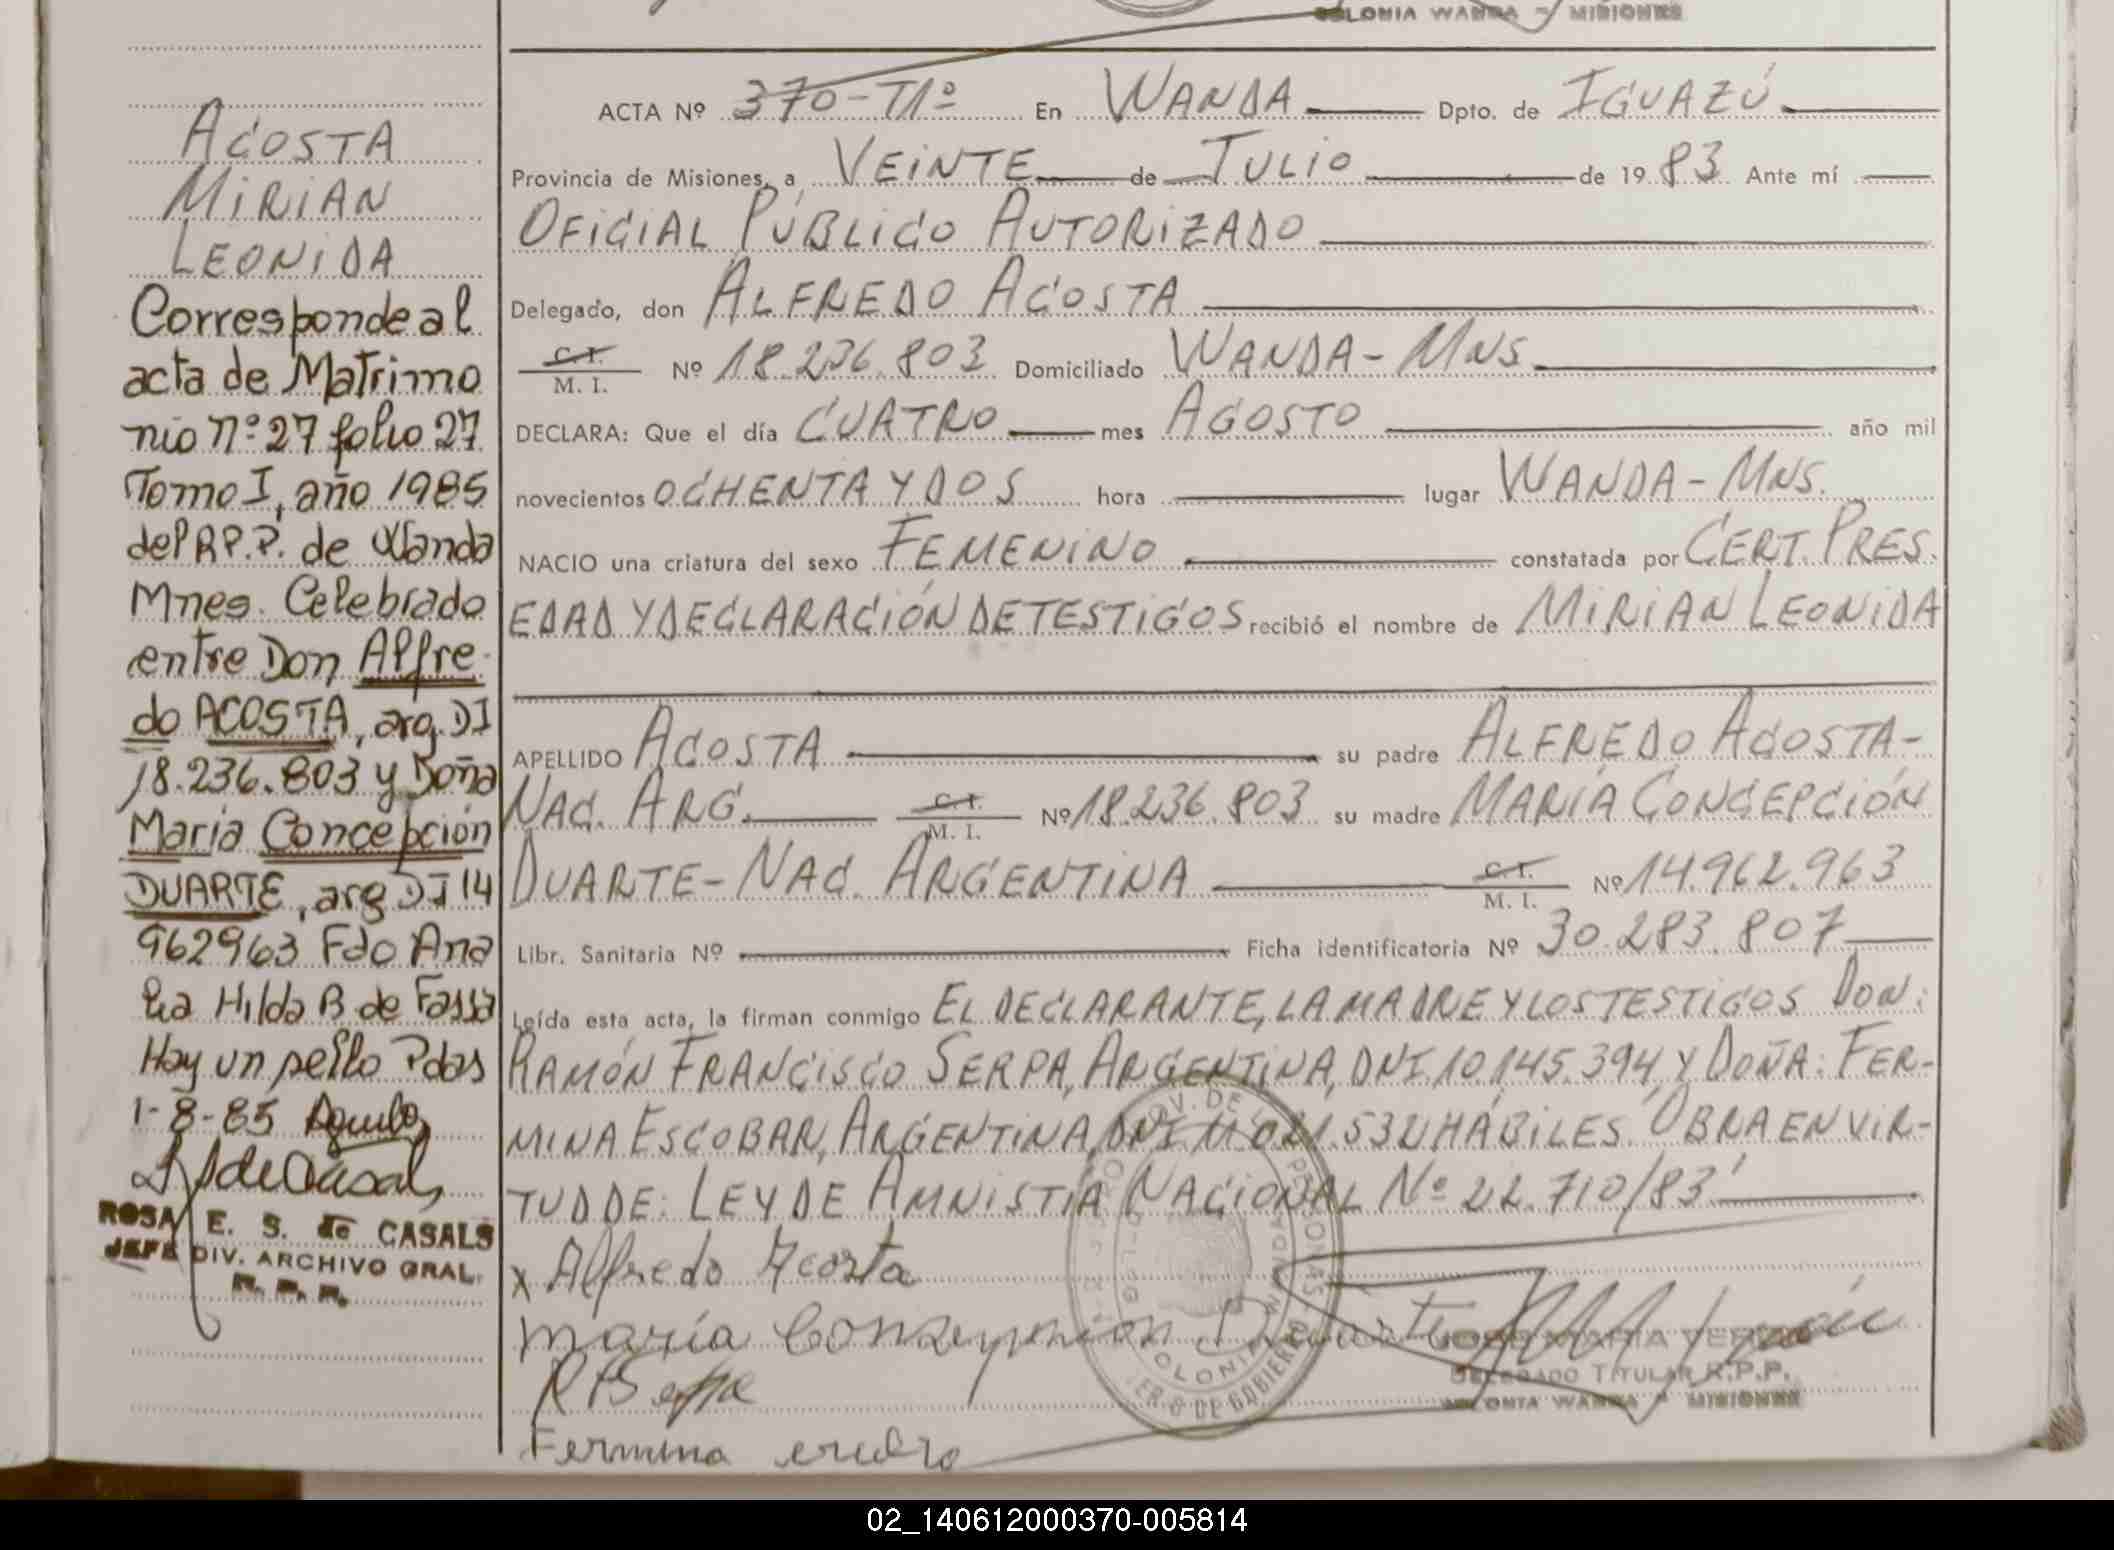 COLONIA WANDA - MISIONES
ACTA Nº 370-T1º En WANDA Dpto. de IGUAZÚ
Provincia de Misiones, a VEINTE de JULIO de 1983 Ante mí
OFICIAL PÚBLICO AUTORIZADO
Delegado, don ALFREDO ACOSTA
C.I.
M. I. Nº 18.236.803 Domiciliado WANDA-MNS
DECLARA: Que el día CUATRO mes AGOSTO año mil
novecientos OCHENTA Y DOS hora lugar WANDA-MNS.
NACIO una criatura del sexo FEMENINO constatada por CERT. PRES.
EDAD Y DECLARACIÓN DE TESTIGOS recibió el nombre de MIRIAN LEONIDA
APELLIDO ACOSTA su padre ALFREDO ACOSTA-
NAC. ARG. C.I. M. I. Nº 18.236.803 su madre MARÍA CONCEPCIÓN
DUARTE-NAC. ARGENTINA C.I. M. I. Nº 14.962.963
Libr. Sanitaria Nº Ficha identificatoria Nº 30.283.807
Leída esta acta, la firman conmigo EL DECLARANTE, LA MADRE Y LOS TESTIGOS DON:
RAMÓN FRANCISCO SERPA, ARGENTINA, DNI.10.145.394, Y DOÑA: FER-
MINA ESCOBAR, ARGENTINA, DNI HÁBILES. OBRA EN VIR-
TUD DE: LEY DE AMNISTÍA NACIONAL Nº 22.710/83
x Alfredo Acosta
María
Fermina
DELEGADO TITULAR R.P.P.
COLONIA WANDA - MISIONES
ACOSTA
MIRIAN
LEONIDA
Corresponde al
acta de Matrimo
nio nº 27 folio 27
Tomo I, año 1985
del R.P.P. de Wanda
Mnes. Celebrado
entre Don Alfre-
do ACOSTA, arg. DI
18.236.803 y Doña
María Concepción
DUARTE, arg DI 14
962963 Fdo Ana
lia Hilda B de Fassa
Hay un sello Pdas
1-8-85
ROSA E. S. de CASALS
JEFE DIV. ARCHIVO GRAL.
R. P. P.
02_140612000370-005814